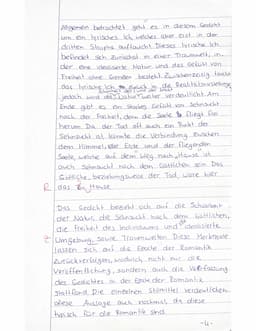 Allgemein betrachtet geht es in diesem Gedicht
um ein lyrisches Ich, welches aber erst in der
dritten Strophe auftaucht. Dieses lyrische Ich
befindet sich zunächst in einer Traumwelt, in
der eine idealisierte Natur und das Gefühl von
Freiheit ohne Grenzen besteht. Zwischenzeitig taucht
das lyrische Ich zurück in die Realität
jedoch wird die Natur weiter verdeutlicht. Am
Ende gibt es ein starkes Gefühl von Sehnsucht
nach der Freiheit, denn die Seele fliegt frei
herum. Da der Tod oft auch ein Punkt der
Sehnsucht ist könnte die Verbindung zwischen
dem Himmel, der Erde und der fliegenden
Seele, welche auf dem Weg nach Hause ist
auch Sehnsucht nach dem Göttlichen sein. Das
Göttliche, beziehungsweise der Tod, wäre hier
R das Hause.
Das Gedicht bezieht sich auf die Schönheit
der Natur, die Sehnsucht nach dem Göttlichen,
die Freiheit des Individuums und idealisierte
Z Umgebung, sowie Traumwelten. Diese Merkmale
lassen sich auf die Epoche der Romantik
zurückverfolgen, wodurch nicht nur die
Veröffentlichung, sondern auch die Verfassung
des Gedichtes in der Epoche der Romantik
stattfand. Die einzelnen Stilmittel verdeutlichen
diese Aussage auch nochmal, da diese
typisch für die Romantik sind.
-4-